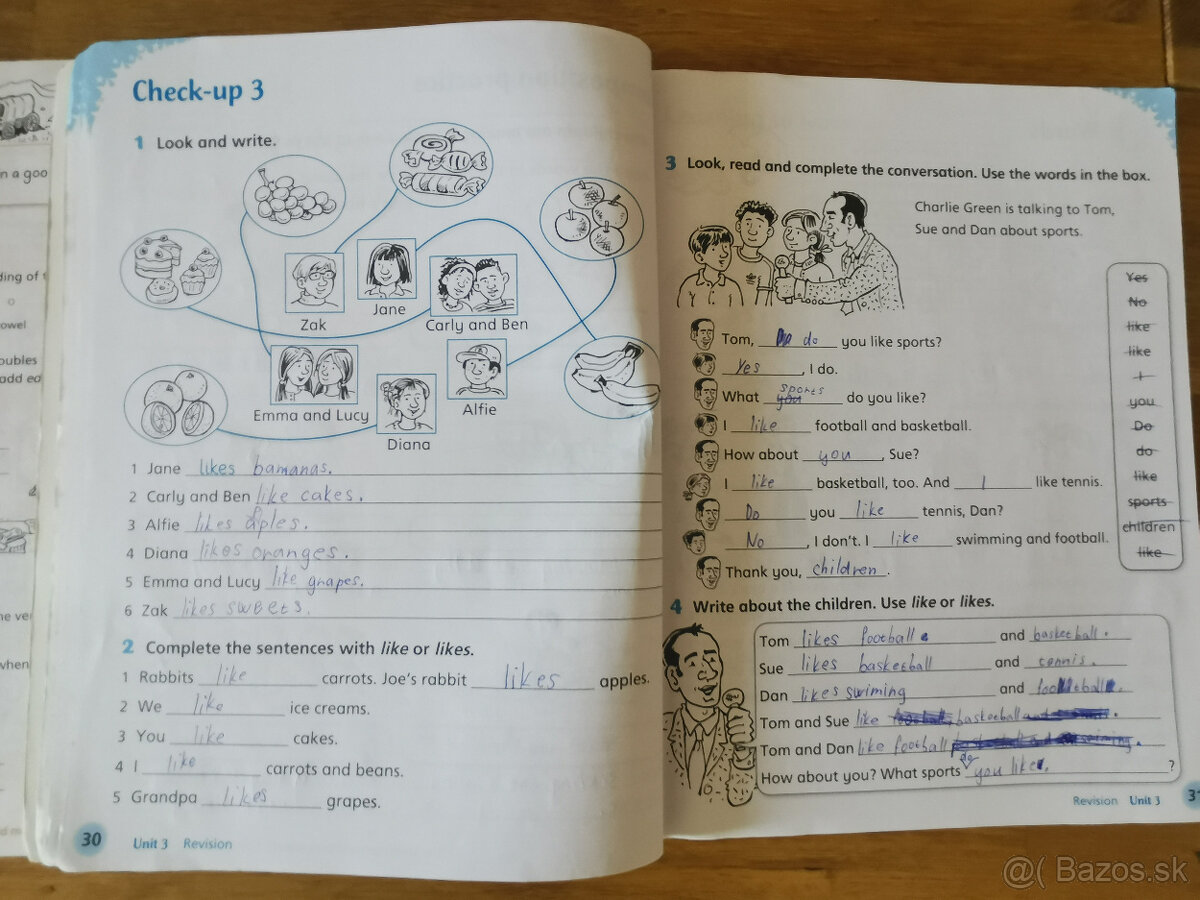 n a goo
ding of t
owel
oubles
add ed
he ve
when
Check-up 3
1 Look and write.
Zak
Jane
Carly and Ben
Emma and Lucy
Diana
Alfie
1 Jane likes bamanas.
2 Carly and Ben like cakes.
3 Alfie likes aples.
4 Diana likes oranges.
5 Emma and Lucy like grapes.
6 Zak likes sweets.
2 Complete the sentences with like or likes.
1 Rabbits like carrots. Joe's rabbit likes apples.
2 We like ice creams.
3 You like cakes.
4 I like carrots and beans.
5 Grandpa likes grapes.
30 Unit 3 Revision
3 Look, read and complete the conversation. Use the words in the box.
Charlie Green is talking to Tom,
Sue and Dan about sports.
Yes
No
like
like
I
you
Do
do
like
sports
children
like
Tom, do you like sports?
Yes, I do.
What sports you do you like?
I like football and basketball.
How about you, Sue?
I like basketball, too. And I like tennis.
Do you like tennis, Dan?
No, I don't. I like swimming and football.
Thank you, children.
4 Write about the children. Use like or likes.
Tom likes football and basketball.
Sue likes basketball and tennis.
Dan likes swiming and football.
Tom and Sue like basketball.
Tom and Dan like football.
How about you? What sports do you like. ?
Revision Unit 3 31
@( Bazos.sk